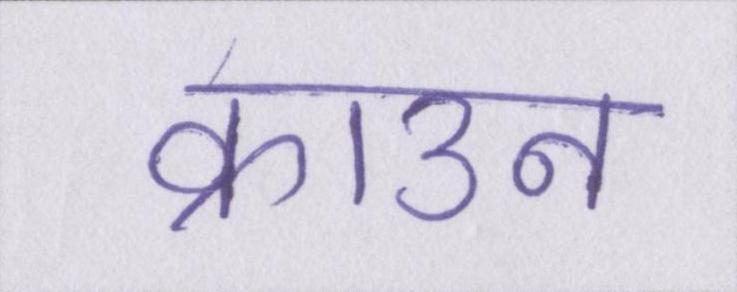 क्राउन